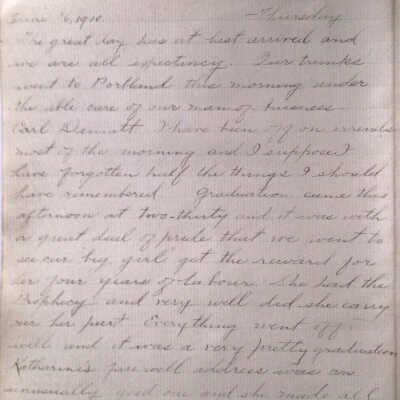 June 16, 1910. Thursday
The great day has at last arrived and
we are all expectincy. Our trunks
went to Portland this morning under
the able care of our man of business
Carl Dennett I have been off on errands
most of the morning and I suppose I
have forgotten half the things I should
have remembered. Graduation came this
afternoon at two-thirty and it was with
a great deal of pride that we went to
see our big girl get the reward for
her four years of labour. She had the
Prophecy and very well did she carry
out her part Everything went off
well and it was a very pretty graduation
Katharine's farewell address was an
unusually good one and she made all